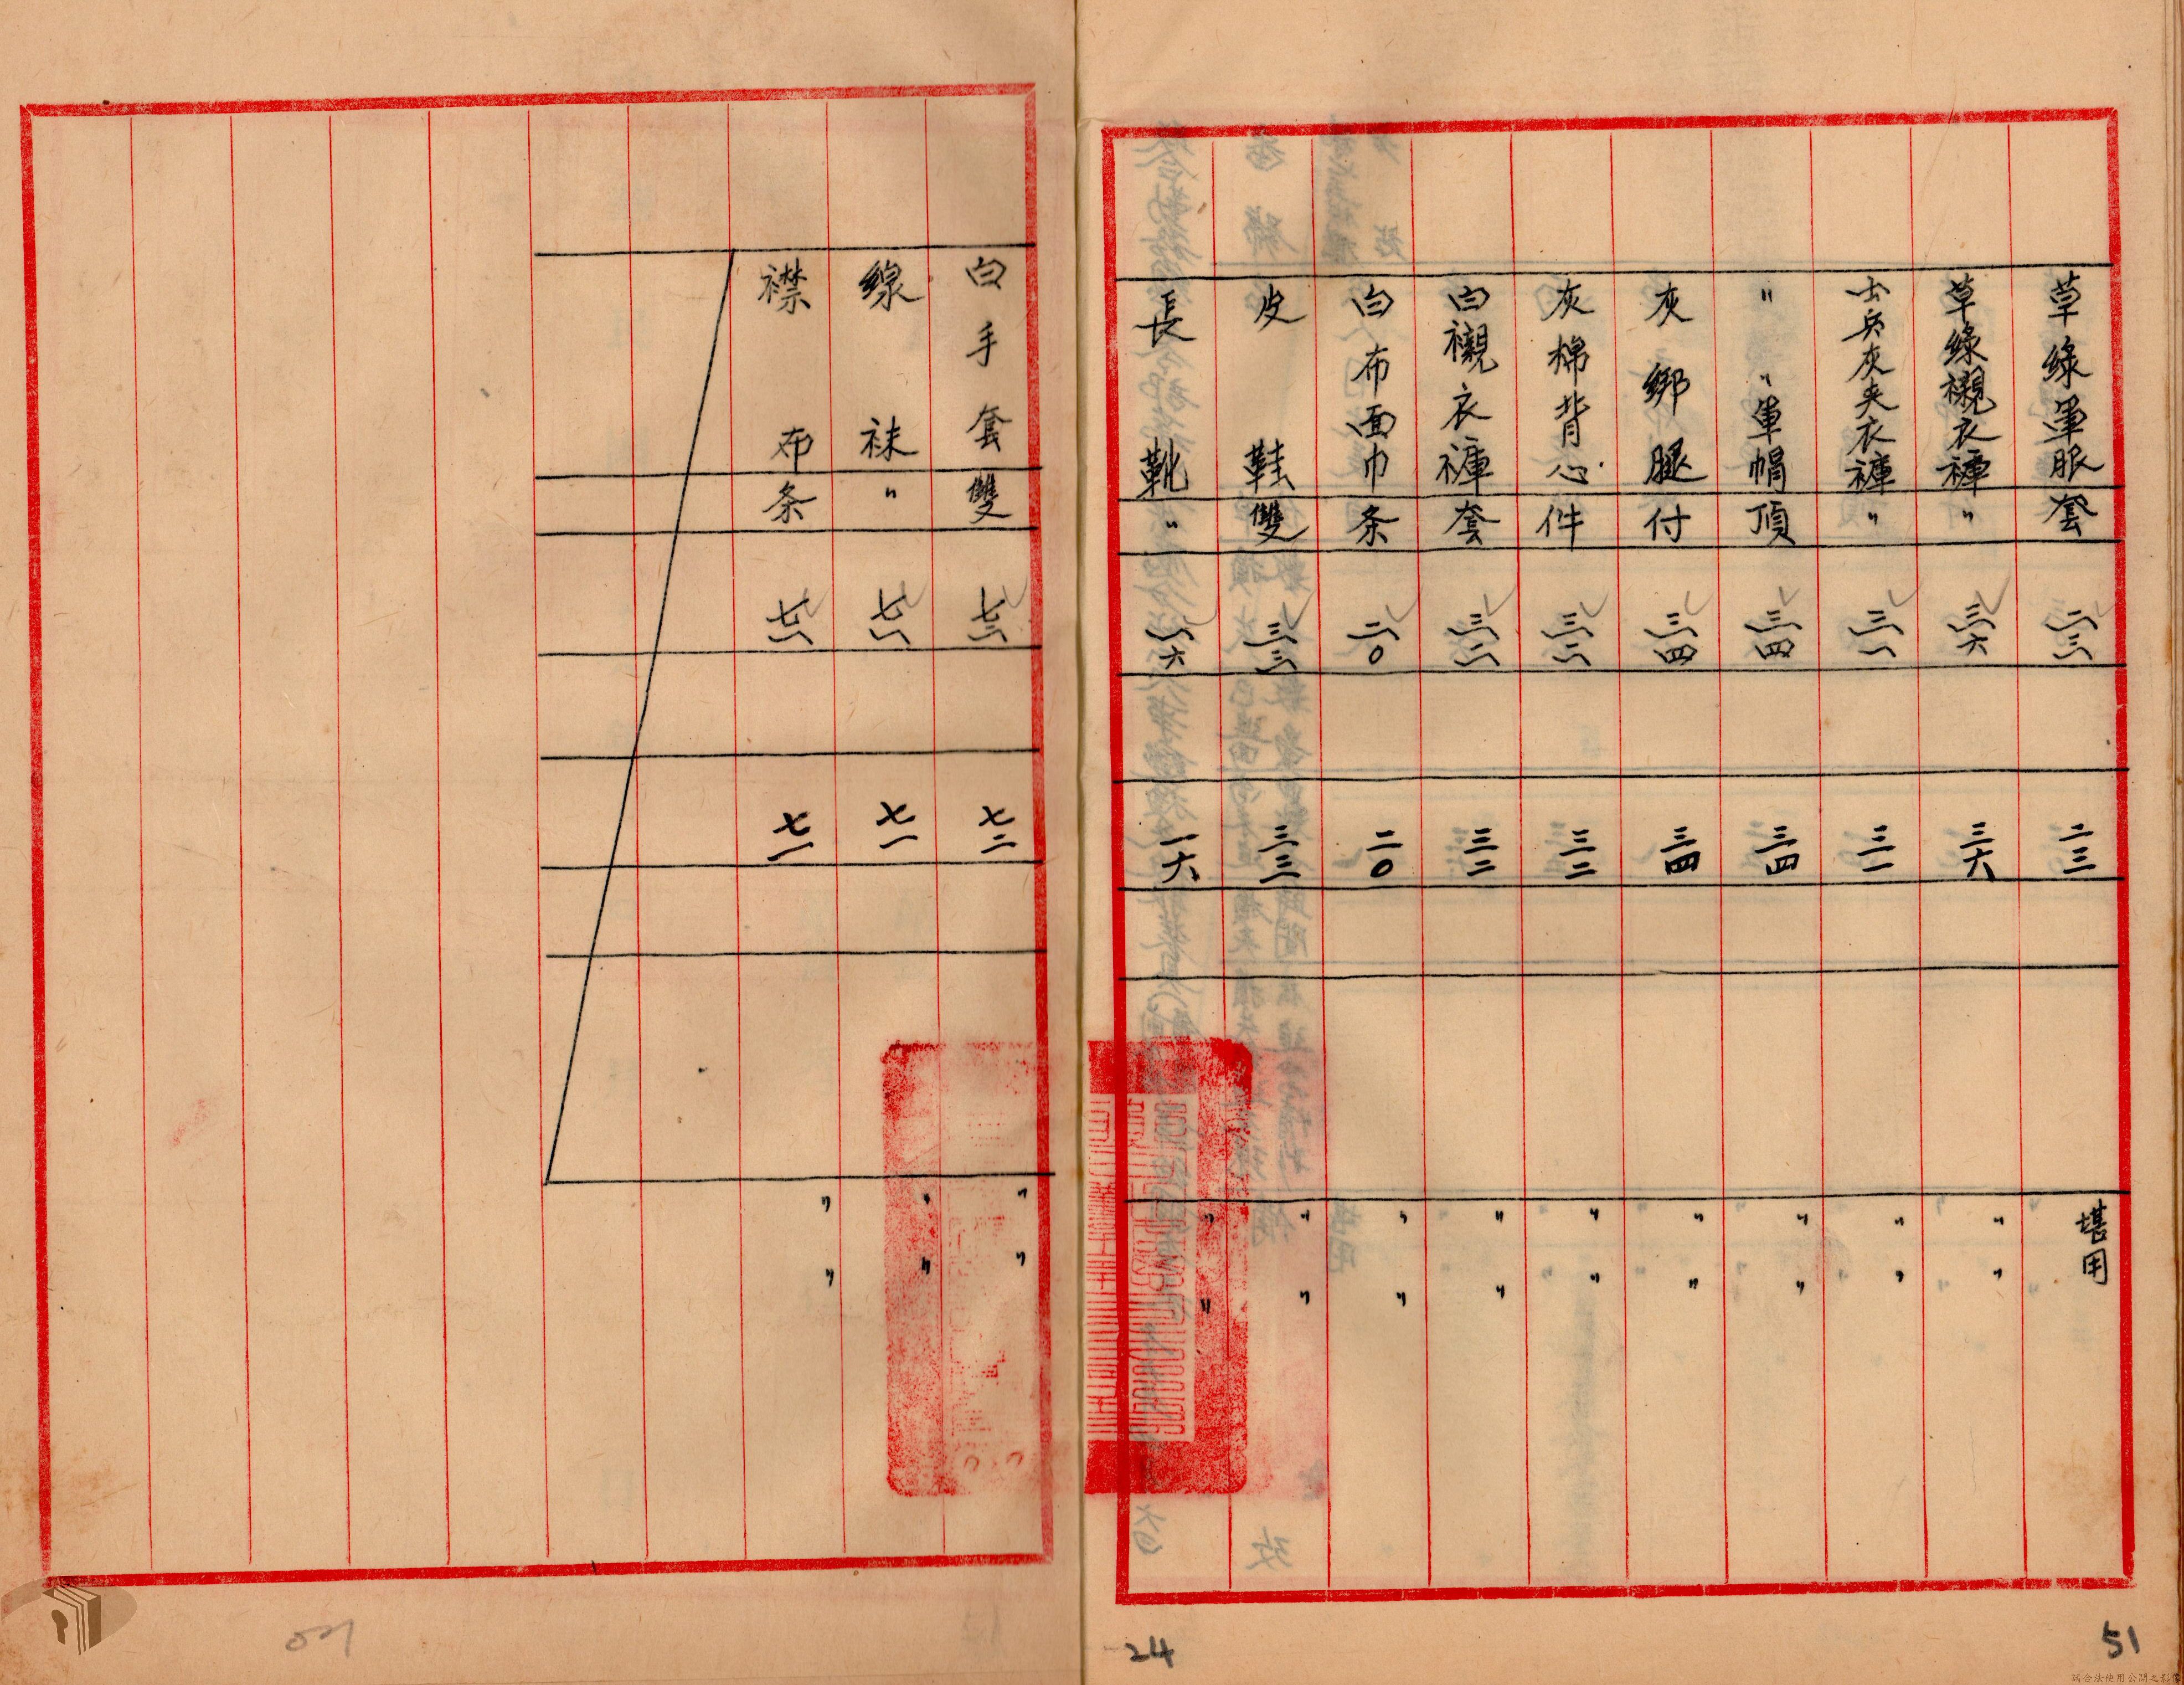 草綠軍服 套 二三 二三 堪用
草綠襯衣褲 〃 三六 三六 〃 〃
士兵灰夾衣褲 〃 三一 三一 〃 〃
〃 〃 軍帽 頂 三四 三四 〃 〃
灰綁腿 付 三四 三四 〃 〃
灰棉背心 件 三二 三二 〃 〃
白襯衣褲 套 三二 三二 〃 〃
白布面巾 条 二〇 二〇 〃 〃
皮鞋 雙 三三 三三 〃 〃
長靴 〃 一六 一六 〃 〃
白手套 雙 七二 七二 〃 〃
線袜 〃 七一 七一 〃 〃
襟布 条 七一 七一 〃 〃
24
51
請合法使用公開之影像